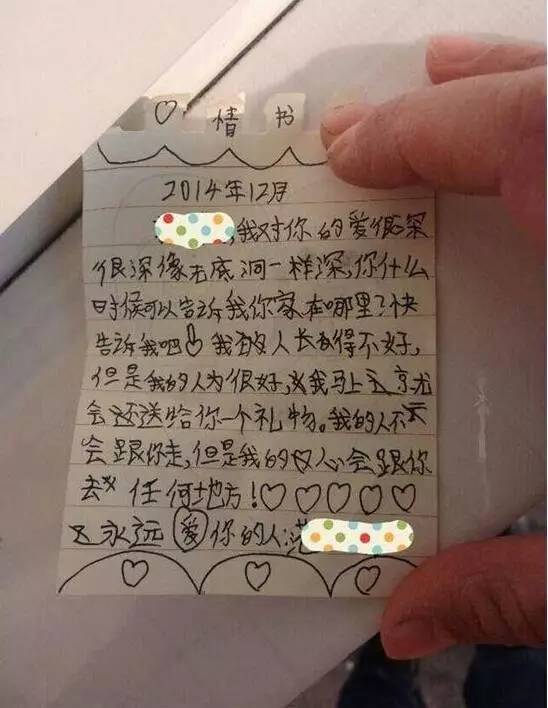 ♡ 情书
2014年12月
,我对你的爱很深
很深像无底洞一样深,你什么
时候可以告诉我你家在哪里?快
告诉我吧 我的人长得不好,
但是我的人为很好,我马上
会还送给你一个礼物。我的人不
会跟你走,但是我的心会跟你
去 任何地方!♡♡♡♡♡
永远爱你的人:范